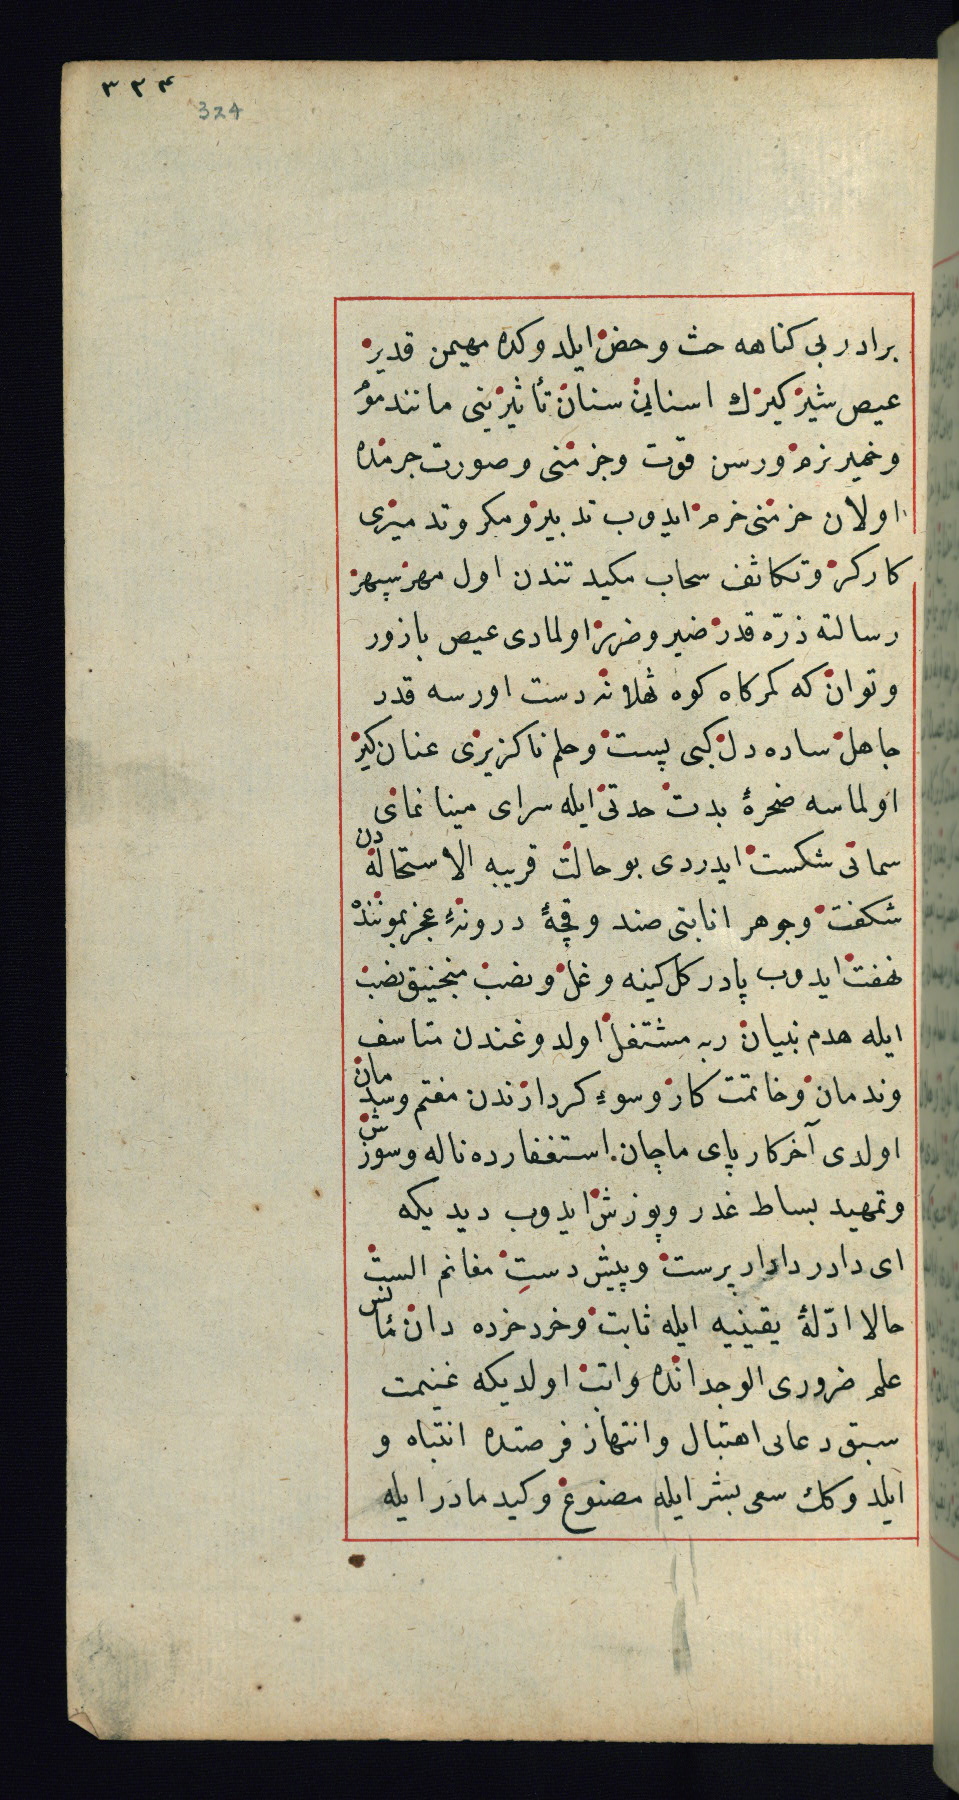 ٣٢۴
324
برادر بی کناهه حث وحض ایلدوکده مهیمن قدیر
عیص شیر کیرك اسنانی سنان تأثیرینی مانند مو
وخمیر نرم ورسن قوت وجزمنی وصورت جرمنده
اولان حزمنی خرم ایدوب تدبیر ومکر وتدمیری
کارکر وتکاثف سحاب مکیدتندن اول مهر سپهر
رسالته ذرّه قدر ضیر وضرر اولمادی عیص بازور
وتوان که کمرکاه کوه ثهلانه دست اورسه قدر
جاهل ساده دل کبی پست وحلم ناکزیری عنان کیر
اولماسه ضجرهٔ بدت حدتی ایله سرای مینا نمای
سماتی شکست ایدردی بو حالت قریبه الاستحاله دن
شکفت وجوهر انابتی صندوقچهٔ درونهٔ عجز نموننده
نهفت ایدوب پادر کل کینه وغل ونصب منجنیق نصب
ایله هدم بنیان ربه مشتغل اولدوغندن متاسف
وندمان وخاتمت کار وسوء کردارندن مغتم وسدمان
اولدی آخرکار پای ماچان استغفارده ناله وسوزش
وتمهید بساط غدر وپوزش ایدوب دیدیکه
ای دادر دادار پرست وپیش دستِ مغانم الست
حالا ادّلهٔ یقینیه ایله ثابت وخرد خرده دان
علم ضروری الوجدانده واتب اولدیکه غنیمت
سبق دعای اهتبال وانتهاز فرصتده انتباه و
ایلدوکك سعی بشر ایله مصنوع وکید مادر ایله